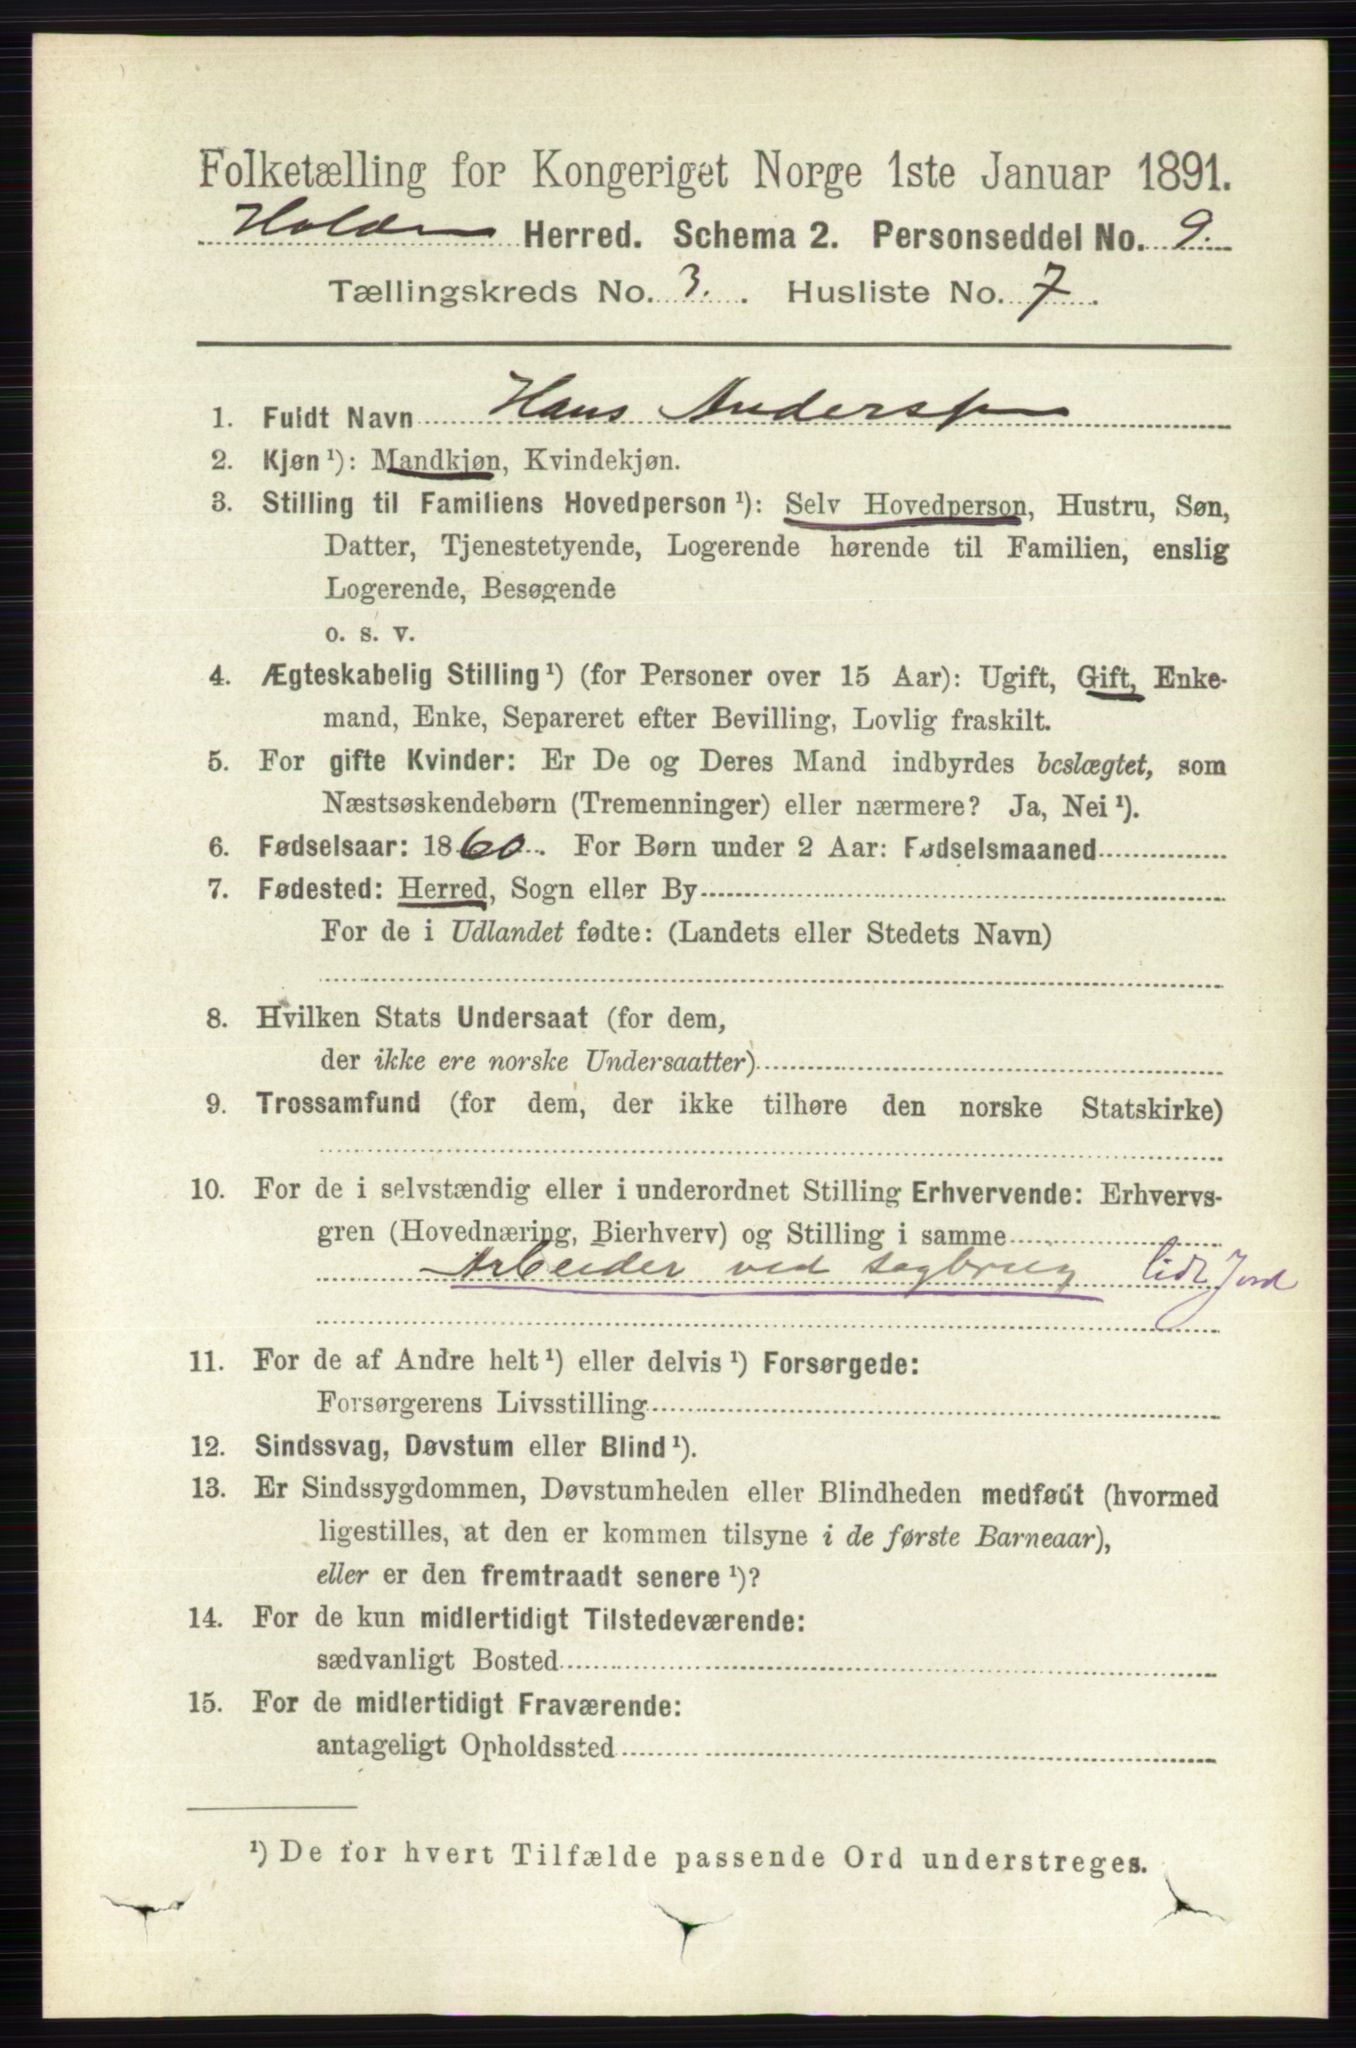 Folketælling for Kongeriget Norge 1ste Januar 1891.
Holden Herred. Schema 2. Personseddel No. 9.
Tællingskreds No. 3. Husliste No. 7.
1. Fuldt Navn Hans Anderssen
2. Kjøn ¹): Mandkjøn, Kvindekjøn.
3. Stilling til Familiens Hovedperson ¹): Selv Hovedperson, Hustru, Søn,
Datter, Tjenestetyende, Logerende hørende til Familien, enslig
Logerende, Besøgende
o. s. v.
4. Ægteskabelig Stilling ¹) (for Personer over 15 Aar): Ugift, Gift, Enke-
mand, Enke, Separeret efter Bevilling, Lovlig fraskilt.
5. For gifte Kvinder: Er De og Deres Mand indbyrdes beslægtet, som
Næstsøskendebørn (Tremenninger) eller nærmere? Ja, Nei ¹).
6. Fødselsaar: 1860. For Børn under 2 Aar: Fødselsmaaned
7. Fødested: Herred, Sogn eller By
For de i Udlandet fødte: (Landets eller Stedets Navn)
8. Hvilken Stats Undersaat (for dem,
der ikke ere norske Undersaatter)
9. Trossamfund (for dem, der ikke tilhøre den norske Statskirke)
10. For de i selvstændig eller i underordnet Stilling Erhvervende: Erhvervs-
gren (Hovednæring, Bierhverv) og Stilling i samme
Arbeider ved sagbrug lidt Jord
11. For de af Andre helt ¹) eller delvis ¹) Forsørgede:
Forsørgerens Livsstilling
12. Sindssvag, Døvstum eller Blind ¹).
13. Er Sindssygdommen, Døvstumheden eller Blindheden medfødt (hvormed
ligestilles, at den er kommen tilsyne i de første Barneaar),
eller er den fremtraadt senere ¹)?
14. For de kun midlertidigt Tilstedeværende:
sædvanligt Bosted
15. For de midlertidigt Fraværende:
antageligt Opholdssted
¹) De for hvert Tilfælde passende Ord understreges.